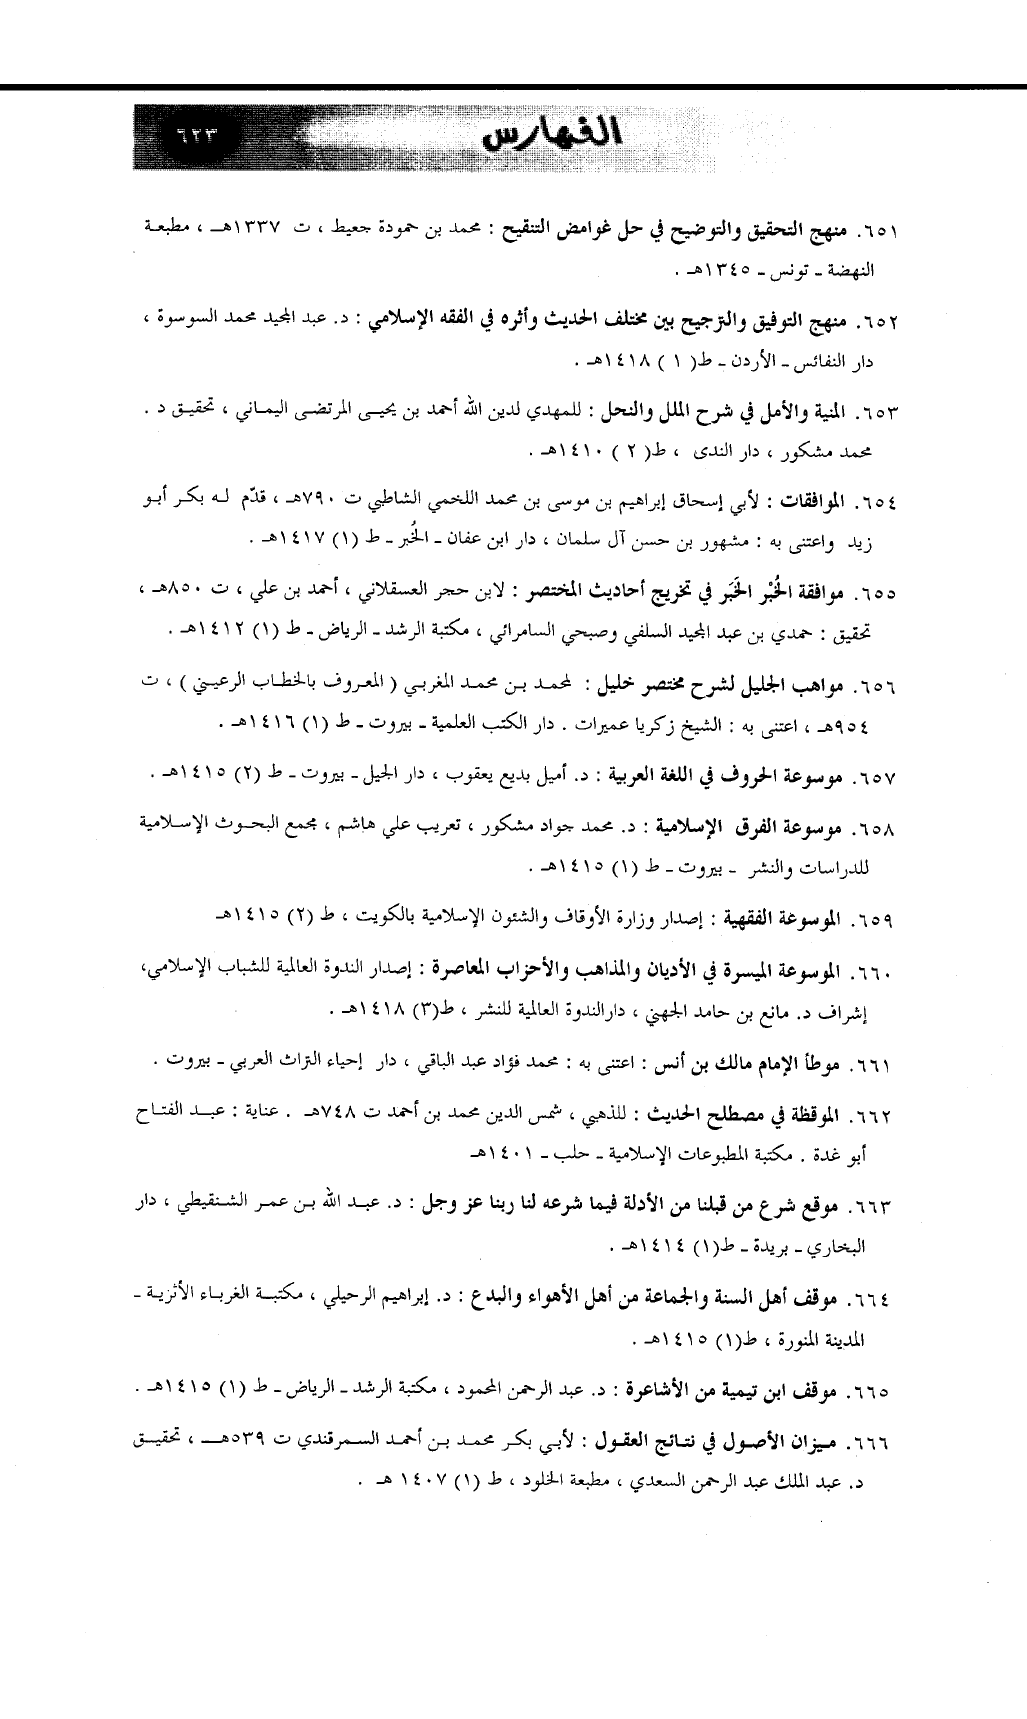 الفهارس ٦٢٣
٦٥١. منهج التحقيق والتوضيح في حل غوامض التنقيح : محمد بن حمودة جعيط ، ت ١٣٣٧هـ ، مطبعة
النهضة ـ تونس ـ ١٣٤٥هـ .
٦٥٢. منهج التوفيق والترجيح بين مختلف الحديث وأثره في الفقه الإسلامي : د. عبد المجيد محمد السوسوة ،
دار النفائس ـ الأردن ـ ط( ١ ) ١٤١٨هـ .
٦٥٣. المنية والأمل في شرح الملل والنحل : للمهدي لدين الله أحمد بن يحيى المرتضى اليماني ، تحقيق د .
محمد مشكور ، دار الندى ، ط( ٢ ) ١٤١٠هـ .
٦٥٤. الموافقات : لأبي إسحاق إبراهيم بن موسى بن محمد اللخمي الشاطبي ت ٧٩٠هـ ، قدّم له بكر أبو
زيد واعتنى به : مشهور بن حسن آل سلمان ، دار ابن عفان ـ الخُبر ـ ط (١) ١٤١٧هـ .
٦٥٥. موافقة الخُبْر الخَبَر في تخريج أحاديث المختصر : لابن حجر العسقلاني ، أحمد بن علي ، ت ٨٥٠هـ ،
تحقيق : حمدي بن عبد المجيد السلفي وصبحي السامرائي ، مكتبة الرشد ـ الرياض ـ ط (١) ١٤١٢هـ .
٦٥٦. مواهب الجليل لشرح مختصر خليل : لمحمد بن محمد المغربي ( المعروف بالخطاب الرعيني ) ، ت
٩٥٤هـ ، اعتنى به : الشيخ زكريا عميرات . دار الكتب العلمية ـ بيروت ـ ط (١) ١٤١٦هـ .
٦٥٧. موسوعة الحروف في اللغة العربية : د. أميل بديع يعقوب ، دار الجيل ـ بيروت ـ ط (٢) ١٤١٥هـ .
٦٥٨. موسوعة الفرق الإسلامية : د. محمد جواد مشكور ، تعريب علي هاشم ، مجمع البحوث الإسلامية
للدراسات والنشر ـ بيروت ـ ط (١) ١٤١٥هـ .
٦٥٩. الموسوعة الفقهية : إصدار وزارة الأوقاف والشئون الإسلامية بالكويت ، ط (٢) ١٤١٥هـ
٦٦٠. الموسوعة الميسرة في الأديان والمذاهب والأحزاب المعاصرة : إصدار الندوة العالمية للشباب الإسلامي،
إشراف د. مانع بن حامد الجهني ، دارالندوة العالمية للنشر ، ط(٣) ١٤١٨هـ .
٦٦١. موطأ الإمام مالك بن أنس : اعتنى به : محمد فؤاد عبد الباقي ، دار إحياء التراث العربي ـ بيروت .
٦٦٢. الموقظة في مصطلح الحديث : للذهبي ، شمس الدين محمد بن أحمد ت ٧٤٨هـ . عناية : عبد الفتاح
أبو غدة . مكتبة المطبوعات الإسلامية ـ حلب ـ ١٤٠١هـ
٦٦٣. موقع شرع من قبلنا من الأدلة فيما شرعه لنا ربنا عز وجل : د. عبد الله بن عمر الشنقيطي ، دار
البخاري ـ بريدة ـ ط(١) ١٤١٤هـ .
٦٦٤. موقف أهل السنة والجماعة من أهل الأهواء والبدع : د. إبراهيم الرحيلي ، مكتبة الغرباء الأثرية ـ
المدينة المنورة ، ط(١) ١٤١٥هـ .
٦٦٥. موقف ابن تيمية من الأشاعرة : د. عبد الرحمن المحمود ، مكتبة الرشد ـ الرياض ـ ط (١) ١٤١٥هـ .
٦٦٦. ميزان الأصول في نتائج العقول : لأبي بكر محمد بن أحمد السمرقندي ت ٥٣٩هـ ، تحقيق
د. عبد الملك عبد الرحمن السعدي ، مطبعة الخلود ، ط (١) ١٤٠٧ هـ .